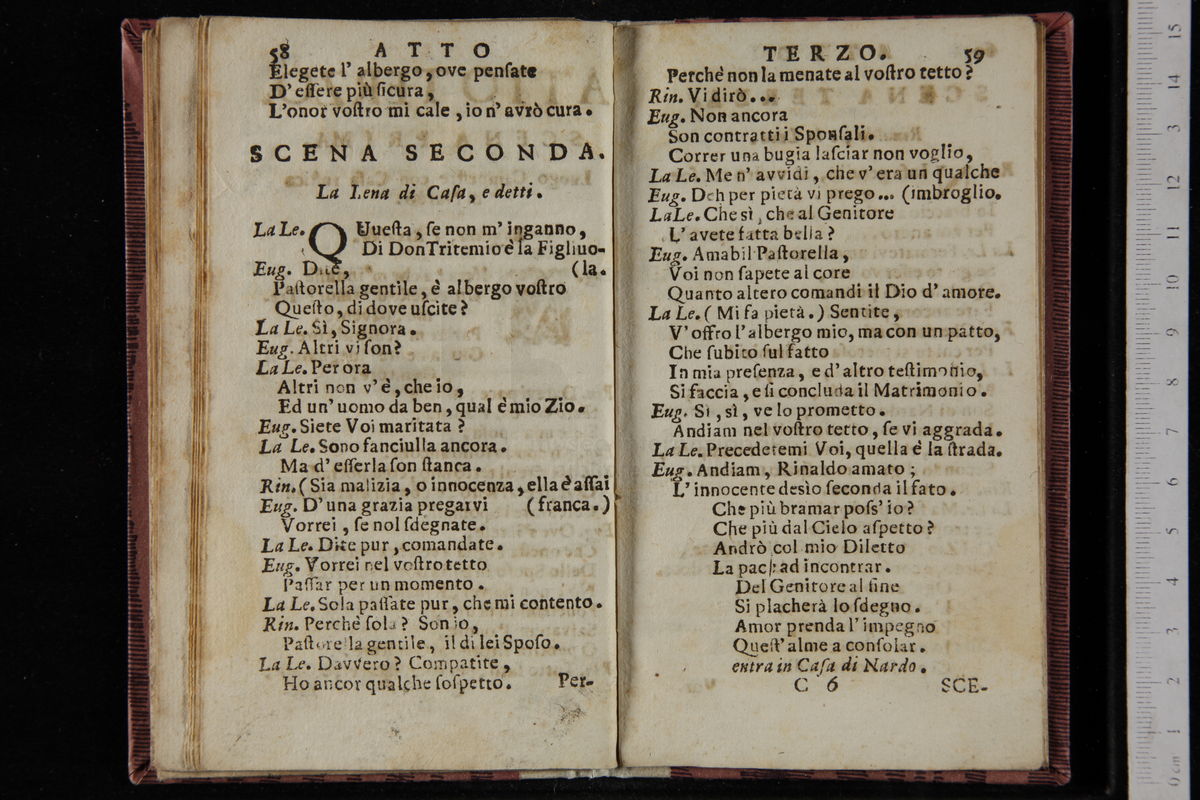 58 ATTO
Elegete l' albergo, ove penſate
D' eſſere più ſicura,
L'onor voſtro mi cale, io n' avrò cura.
SCENA SECONDA.
La Lena di Caſa, e detti.
La Le. QUueſta, ſe non m' inganno,
Di Don Tritemio è la Figliuo-
Eug. Dite, (la.
Paſtorella gentile, è albergo voſtro
Queſto, di dove uſcite?
La Le. Sì, Signora.
Eug. Altri vi ſon?
La Le. Per ora
Altri non v' è, che io,
Ed un' uomo da ben, qual è mio Zio.
Eug. Siete Voi maritata?
La Le. Sono fanciulla ancora.
Ma d' eſſerla ſon ſtanca.
Rin. (Sia malizia, o innocenza, ella è aſſai
Eug. D' una grazia pregarvi (franca.)
Vorrei, ſe nol ſdegnate.
La Le. Dite pur, comandate.
Eug. Vorrei nel voſtro tetto
Paſſar per un momento.
La Le. Sola paſſate pur, che mi contento.
Rin. Perchè ſola? Son io,
Paſtorella gentile, il di lei Spoſo.
La Le. Davvero? Compatite,
Ho ancor qualche ſoſpetto. Per-
TERZO. 59
Perchè non la menate al voſtro tetto?
Rin. Vi dirò...
Eug. Non ancora
Son contratti i Sponſali.
Correr una bugia laſciar non voglio,
La Le. Me n' avvidi, che v' era un qualche
Eug. Deh per pietà vi prego... (imbroglio.
La Le. Che sì, che al Genitore
L' avete fatta bella?
Eug. Amabil Paſtorella,
Voi non ſapete al core
Quanto altero comandi il Dio d' amore.
La Le. (Mi fa pietà.) Sentite,
V' offro l' albergo mio, ma con un patto,
Che ſubito ſul fatto
In mia preſenza, e d' altro teſtimonio,
Si faccia, e ſi concluda il Matrimonio.
Eug. Sì, sì, ve lo prometto.
Andiam nel voſtro tetto, ſe vi aggrada.
La Le. Precedetemi Voi, quella è la ſtrada.
Eug. Andiam, Rinaldo amato;
L' innocente desìo ſeconda il fato.
Che più bramar poſs' io?
Che più dal Cielo aſpetto?
Andrò col mio Diletto
La pace ad incontrar.
Del Genitore al fine
Si placherà lo ſdegno.
Amor prenda l' impegno
Queſt' alme a conſolar.
entra in Caſa di Nardo.
C 6 SCE-
15
14
13
12
11
10
9
8
7
6
5
4
3
2
1
0 cm